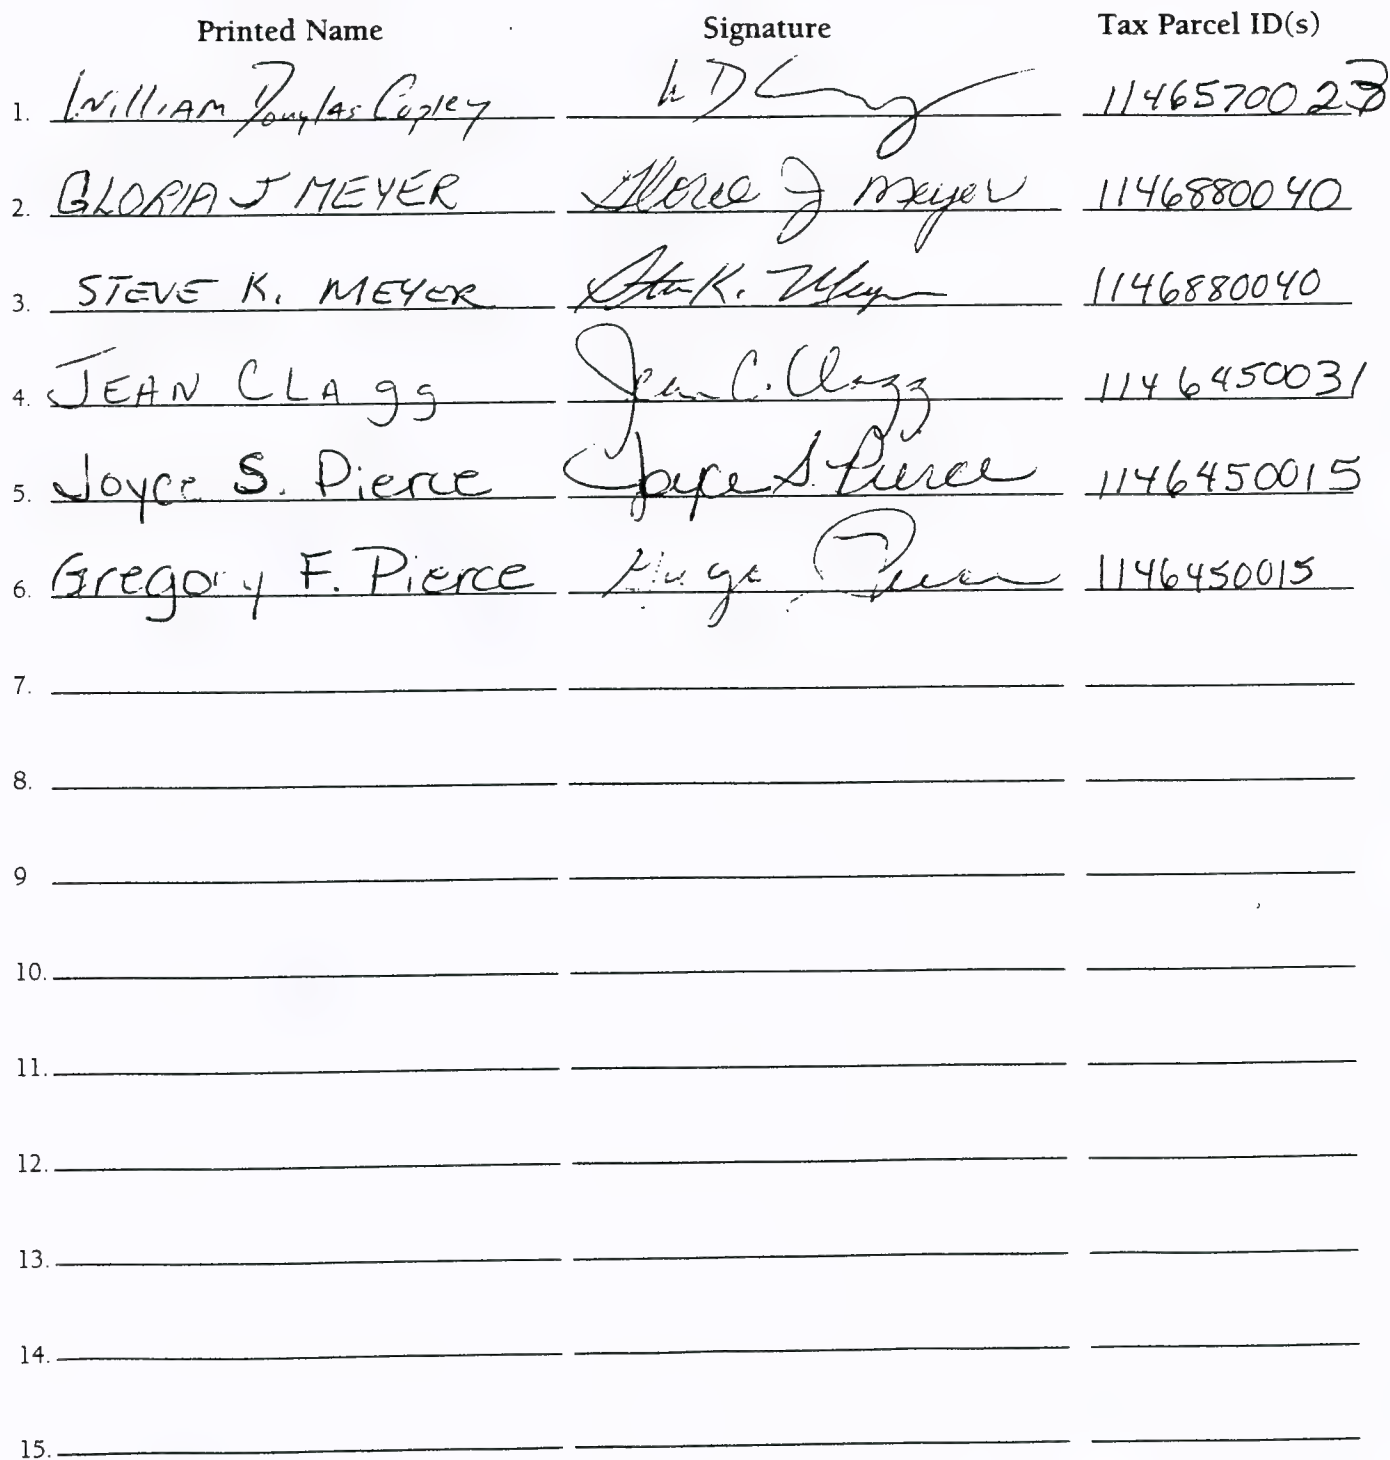 Printed Name Signature Tax Parcel ID(s)
1. William Douglas Copley 1146570023
2. GLORIA J MEYER Gloria J Meyer 1146880040
3. STEVE K. MEYER Steve K. Meyer 1146880040
4. JEAN CLAgg Jean C. Clagg 1146450031
5. Joyce S. Pierce Joyce S. Pierce 1146450015
6. Gregory F. Pierce 1146450015
7.
8.
9
10.
11.
12.
13.
14.
15.